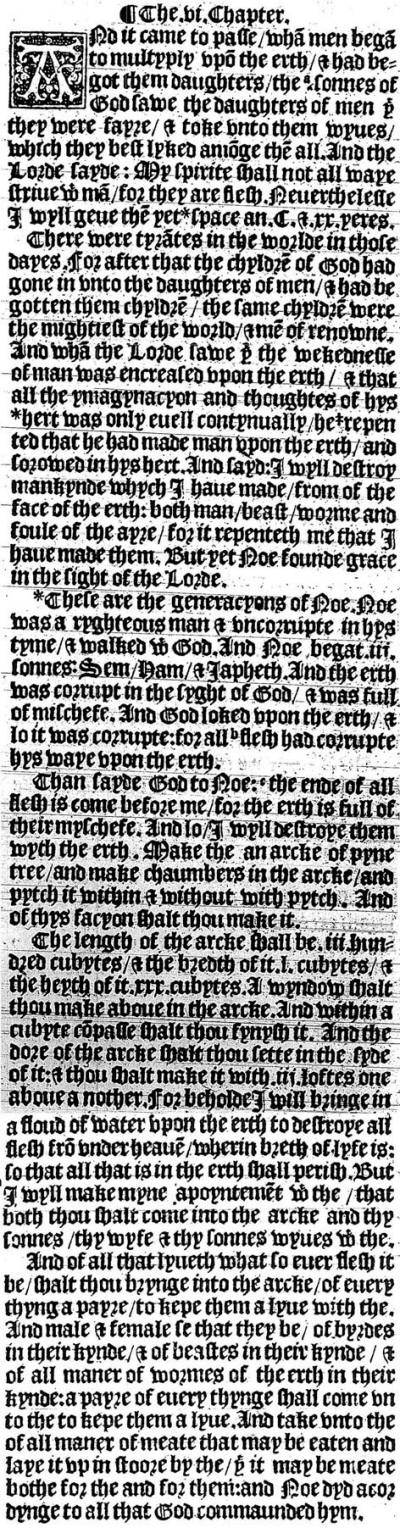 ¶The.vi.Chapter.
ANd it came to passe/whā men begā
to multyply vpō the erth/& had be-
got them daughters/the ᵃ·sonnes of
God sawe the daughters of men yͭ
they were fayre/ & toke vnto them wyues/
which they best lyked amōge thē all.And the
Lorde sayde: My spirite shall not all waye
striue wͭ mā/for they are flesh.Neuerthelesse
I wyll geue thē yet*space an.C.&.xx.yeres.
There were tyrātes in the worlde in those
dayes.For after that the chyldrē of God had
gone in vnto the daughters of men/& had be
gotten them chyldrē/ the same chyldrē were
the mightiest of the world/& mē of renowne.
And whā the Lorde sawe yͭ the wekednesse
of man was encreased vpon the erth/ & that
all the ymagynacyon and thoughtes of hys
*hert was only euell contynually/he‡repen
ted that he had made man vpon the erth/and
sorowed in hys hert.And sayd:I wyll destroy
mankynde whych I haue made/from of the
face of the erth: both man/beast/worme and
foule of the ayre/ for it repenteth me that I
haue made them. But yet Noe founde grace
in the sight of the Lorde.
*These are the generacyons of Noe.Noe
was a ryghteous man & vncorrupte in hys
tyme/& walked wͭ God.And Noe begat.iii.
sonnes: Sem/Ham/& Japheth.And the erth
was corrupt in the syght of God/ & was full
of mischefe. And God loked vpon the erth/ &
lo it was corrupte:for all ᵇflesh had corrupte
hys waye vpon the erth.
Than sayde God to Noe:ᶜ the ende of all
flesh is come before me/for the erth is full of
their myschefe. And lo/I wyll destroye them
wyth the erth. Make the an arcke of pyne
tree/and make chaumbers in the arcke/and
pytch it within & without with pytch. And
of thys facyon shalt thou make it.
The length of the arcke shall be.iii.hun-
dred cubytes/& the bredth of it.l.cubytes/ &
the heyth of it.xxx.cubytes.A wyndow shalt
thou make aboue in the arcke.And within a
cubyte cōpasse shalt thou fynysh it. And the
dore of the arcke shalt thou sette in the syde
of it:& thou shalt make it with.iii.loftes one
aboue a nother.For beholde I will bringe in
a floud of water vpon the erth to destroye all
flesh frō vnder heauē/wherin breth of lyfe is:
so that all that is in the erth shall perish.But
I wyll make myne apoyntemēt wͭ the /that
both thou shalt come into the arcke and thy
sonnes /thy wyfe & thy sonnes wyues wͭ the.
And of all that lyueth what so euer flesh it
be/shalt thou brynge into the arcke/of euery
thyng a payre/to kepe them a lyue with the.
And male & female se that they be/ of byrdes
in their kynde/& of beastes in their kynde / &
of all maner of wormes of the erth in their
kynde:a payre of euery thynge shall come vn
to the to kepe them a lyue.And take vnto the
of all maner of meate that may be eaten and
laye it vp in stoore by the/yͭ it may be meate
bothe for the and for them:and Noe dyd acor
dynge to all that God commaunded hym.